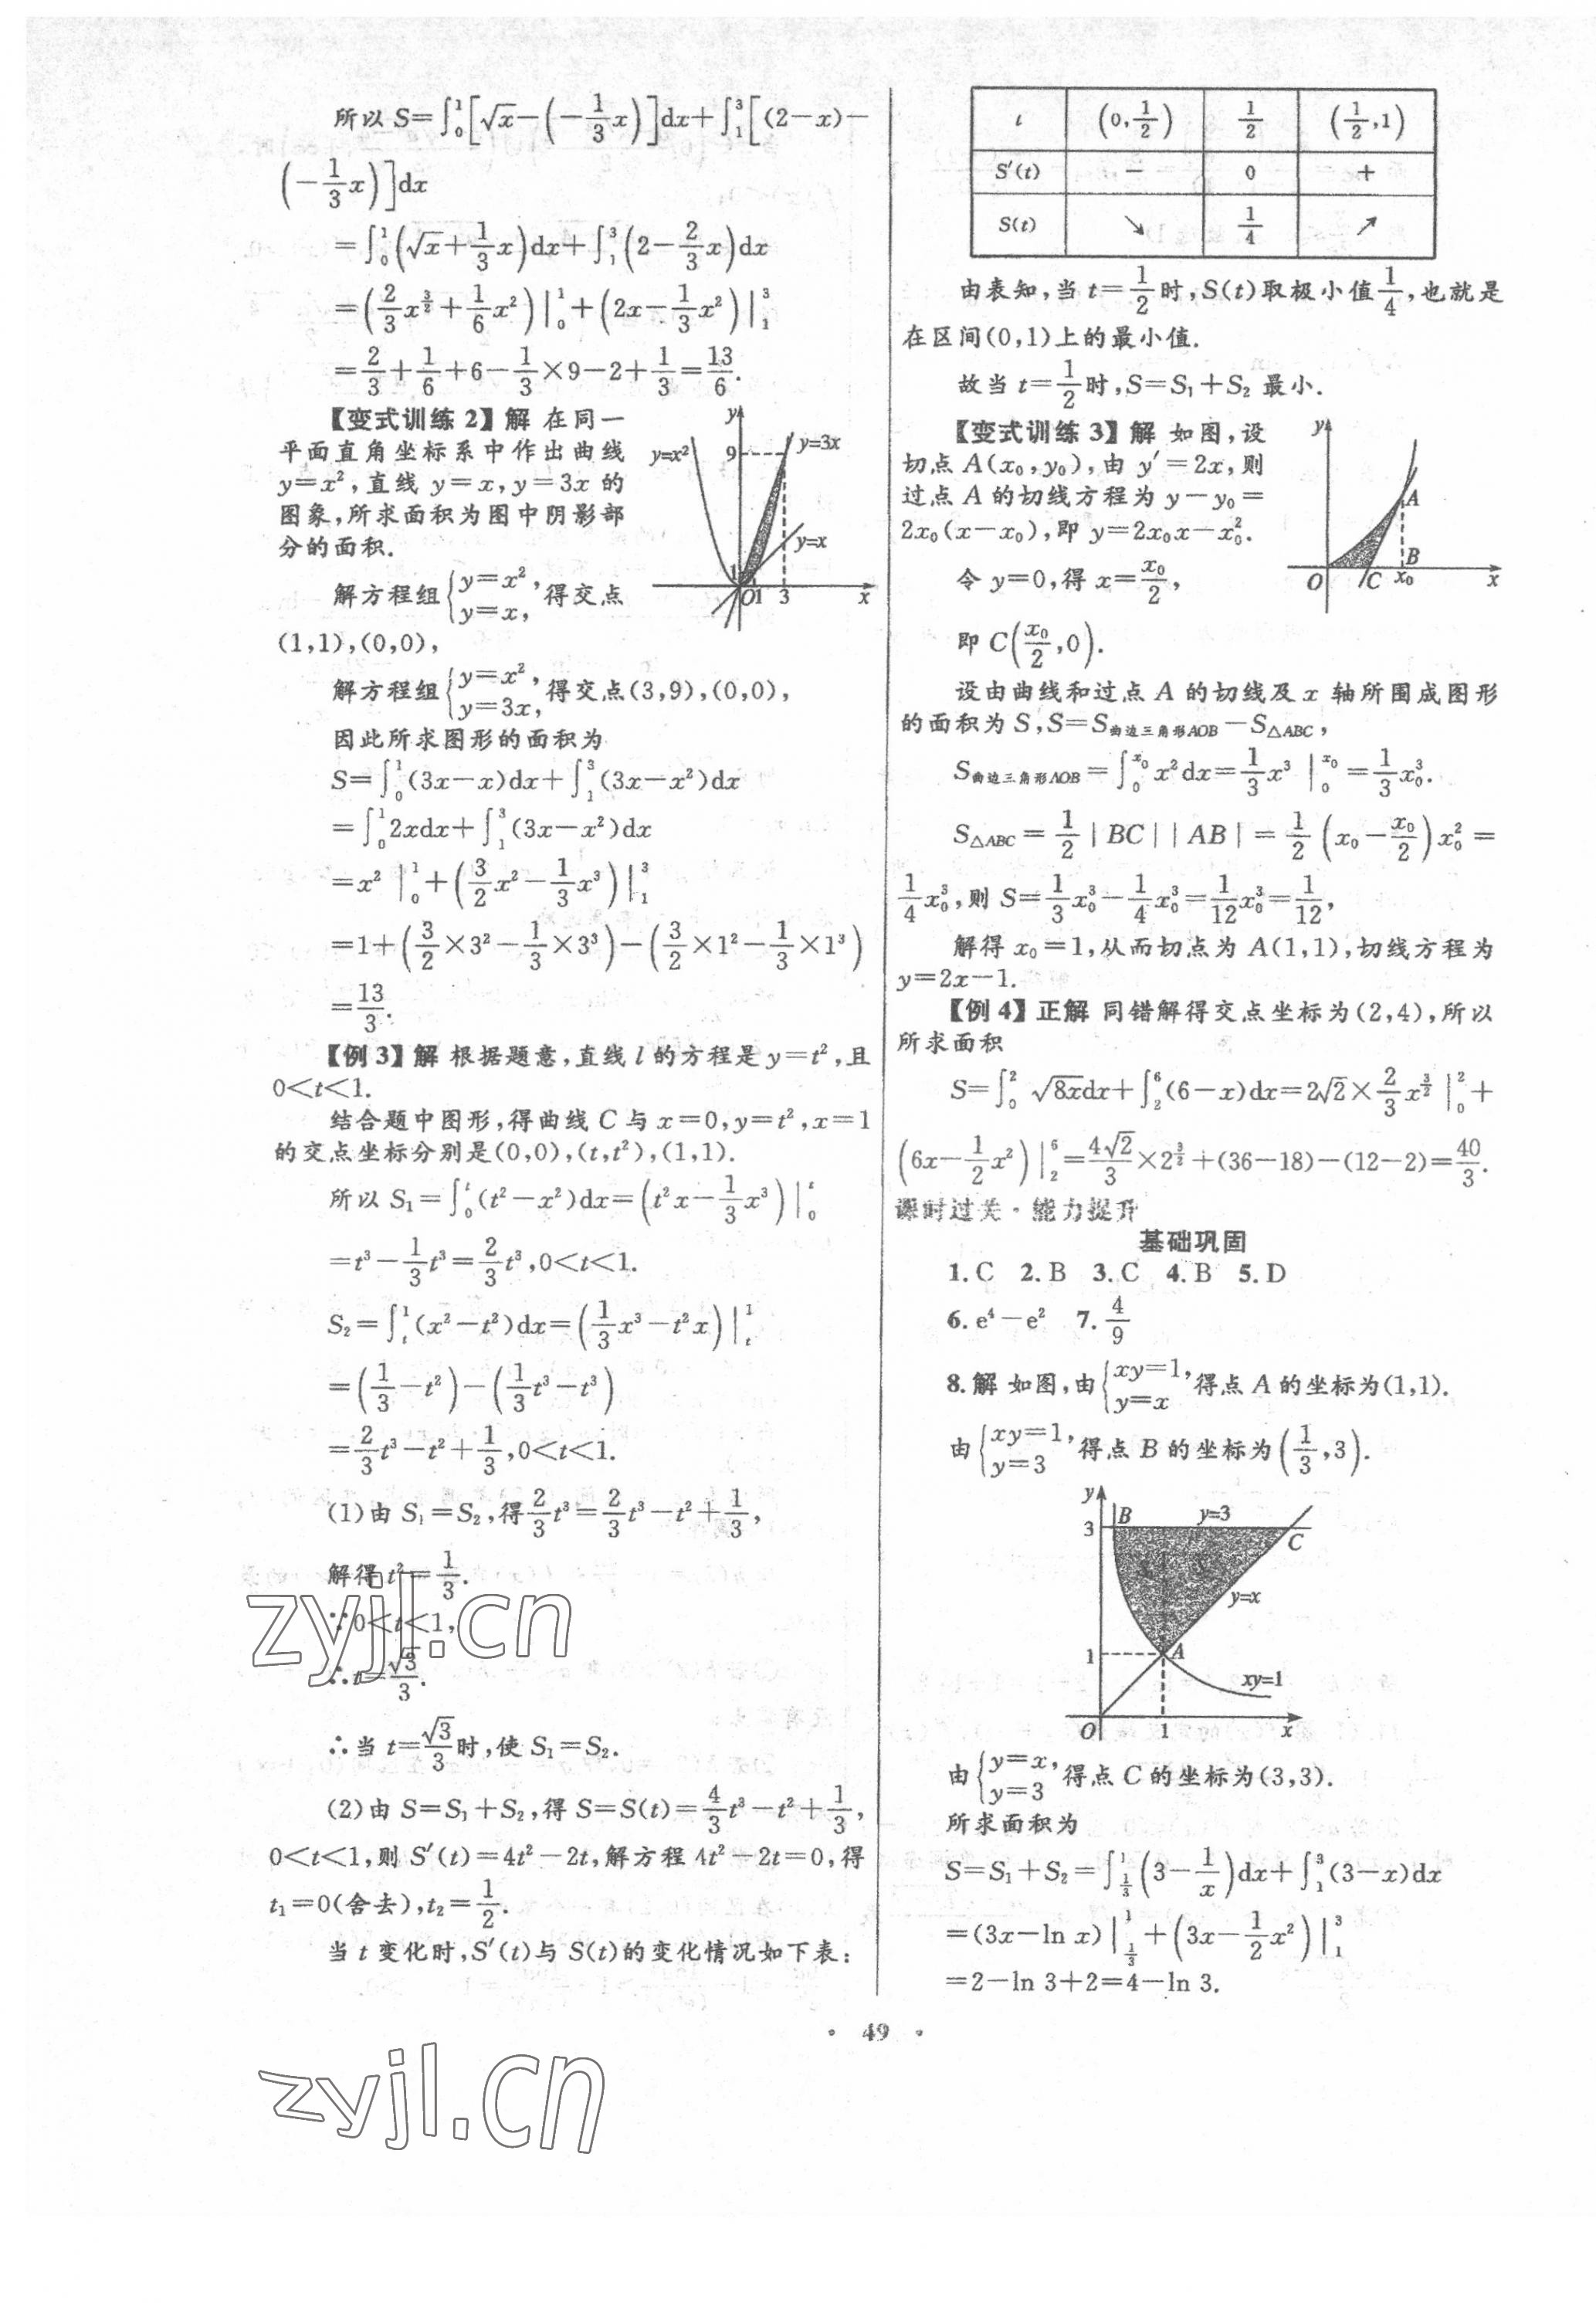 所以 S=∫₀¹[√x-(-1/3x)]dx+∫₁³[(2-x)-
(-1/3x)]dx
=∫₀¹(√x+1/3x)dx+∫₁³(2-2/3x)dx
=(2/3x^(3/2)+1/6x²)|₀¹+(2x-1/3x²)|₁³
=2/3+1/6+6-1/3×9-2+1/3=13/6.
【变式训练2】解 在同一
平面直角坐标系中作出曲线
y=x²,直线 y=x,y=3x 的
图象,所求面积为图中阴影部
分的面积.
y
y=x²
9
y=3x
y=x
1
O
1
3
x
解方程组{y=x², y=x, 得交点
(1,1),(0,0),
解方程组{y=x², y=3x, 得交点(3,9),(0,0),
因此所求图形的面积为
S=∫₀¹(3x-x)dx+∫₁³(3x-x²)dx
=∫₀¹2xdx+∫₁³(3x-x²)dx
=x²|₀¹+(3/2x²-1/3x³)|₁³
=1+(3/2×3²-1/3×3³)-(3/2×1²-1/3×1³)
=13/3.
【例3】解 根据题意,直线 l 的方程是 y=t²,且
0<t<1.
结合题中图形,得曲线 C 与 x=0,y=t²,x=1
的交点坐标分别是(0,0),(t,t²),(1,1).
所以 S₁=∫₀ᵗ(t²-x²)dx=(t²x-1/3x³)|₀ᵗ
=t³-1/3t³=2/3t³,0<t<1.
S₂=∫ₜ¹(x²-t²)dx=(1/3x³-t²x)|ₜ¹
=(1/3-t²)-(1/3t³-t³)
=2/3t³-t²+1/3,0<t<1.
(1)由 S₁=S₂,得2/3t³=2/3t³-t²+1/3,
解得 t²=1/3.
∵0<t<1,
∴t=√3/3.
∴当 t=√3/3时,使 S₁=S₂.
(2)由 S=S₁+S₂,得 S=S(t)=4/3t³-t²+1/3,
0<t<1,则 S′(t)=4t²-2t,解方程 4t²-2t=0,得
t₁=0(舍去),t₂=1/2.
当 t 变化时,S′(t)与 S(t)的变化情况如下表:
t (0,1/2) 1/2 (1/2,1)
S′(t) - 0 +
S(t) ↘ 1/4 ↗
由表知,当 t=1/2时,S(t)取极小值1/4,也就是
在区间(0,1)上的最小值.
故当 t=1/2时,S=S₁+S₂ 最小.
【变式训练3】解 如图,设
切点 A(x₀,y₀),由 y′=2x,则
过点 A 的切线方程为 y-y₀=
2x₀(x-x₀),即 y=2x₀x-x₀².
令 y=0,得 x=x₀/2,
即 C(x₀/2,0).
y
A
B
O
C
x₀
x
设由曲线和过点 A 的切线及 x 轴所围成图形
的面积为 S,S=S曲边三角形AOB-S△ABC,
S曲边三角形AOB=∫₀^(x₀)x²dx=1/3x³|₀^(x₀)=1/3x₀³.
S△ABC=1/2|BC||AB|=1/2(x₀-x₀/2)x₀²=
1/4x₀³,则 S=1/3x₀³-1/4x₀³=1/12x₀³=1/12,
解得 x₀=1,从而切点为 A(1,1),切线方程为
y=2x-1.
【例4】正解 同错解得交点坐标为(2,4),所以
所求面积
S=∫₀²√8xdx+∫₂⁶(6-x)dx=2√2×2/3x^(3/2)|₀²+
(6x-1/2x²)|₂⁶=4√2/3×2^(3/2)+(36-18)-(12-2)=40/3.
课时过关·能力提升
基础巩固
1.C 2.B 3.C 4.B 5.D
6.e⁴-e² 7.4/9
8.解 如图,由{xy=1, y=x 得点 A 的坐标为(1,1).
由{xy=1, y=3 得点 B 的坐标为(1/3,3).
y
B
y=3
3
C
y=x
1
A
xy=1
O
1
x
由{y=x, y=3 得点 C 的坐标为(3,3).
所求面积为
S=S₁+S₂=∫_(1/3)^1(3-1/x)dx+∫₁³(3-x)dx
=(3x-ln x)|_(1/3)^1+(3x-1/2x²)|₁³
=2-ln 3+2=4-ln 3.
· 49 ·
zyjl.cn
zyjl.cn